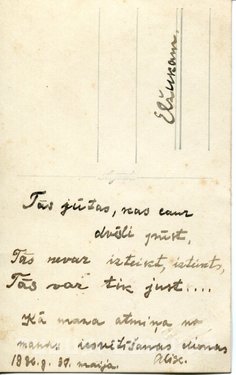 Elžukam.
Tās jūtas, kas caur
dvēsli plūst,
Tās nevar izteikt, izteikt,
Tās var tik just....
Kā mana atmiņa no
manas iesvētīšanas dienas
1936.g. 31. maijā. Alise.